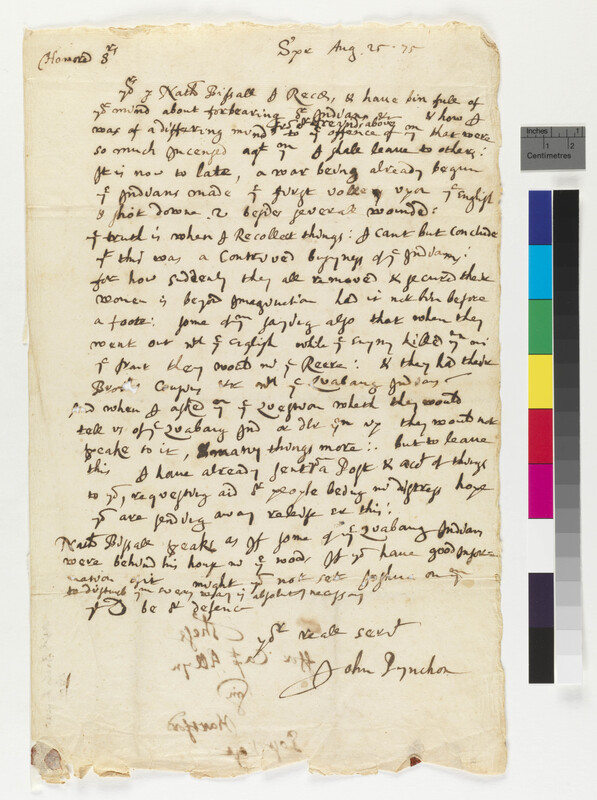 Honored Sr Spr Aug. 25 - 75
yrs p Nath Bissall I Recd, & have bin full of
yr mind about forbearing ye Indians &c & how I
was of a differing mind to ye offence of ym that were
so much Incensed agt ym I shall leave to others:
It is now to late, a war being already begun
ye Indians made ye first volley upon ye English
& shot downe 2 besides severall wounded:
ye truth is when I Recollect things: I cant but conclude
yt this was a Contrived busyness of ye Indians:
for how suddenly they all removed & secured their
women is beyond Imagination had it not bin before
a foote: some of ym saying also that when they
went out wth ye English while ye Enymy killed ym in
ye front they would in ye Reere: & they had their
Brors Cousins &c wth ye Quabaug Indians
And when I asked ym ye Question wheth they would
tell us of ye Quabaug Ind or dlr ym up they would not
speake to it, & many things more: but to leave
this I have already sent a Post & acct of things
to you, requesting aid & people being in distress hope
yu are sending away releife ere this:
Nath Bissall speaks as if some of ye Quabaug Indians
were behind his house in ye woods If yu have good Infor
mation of it might yu not set Joshua on ym
to disturb ym every way is absolutely necessary
ye Ld be or defence
yor reall servt
John Pynchon
Inches 1 2
Centimetres